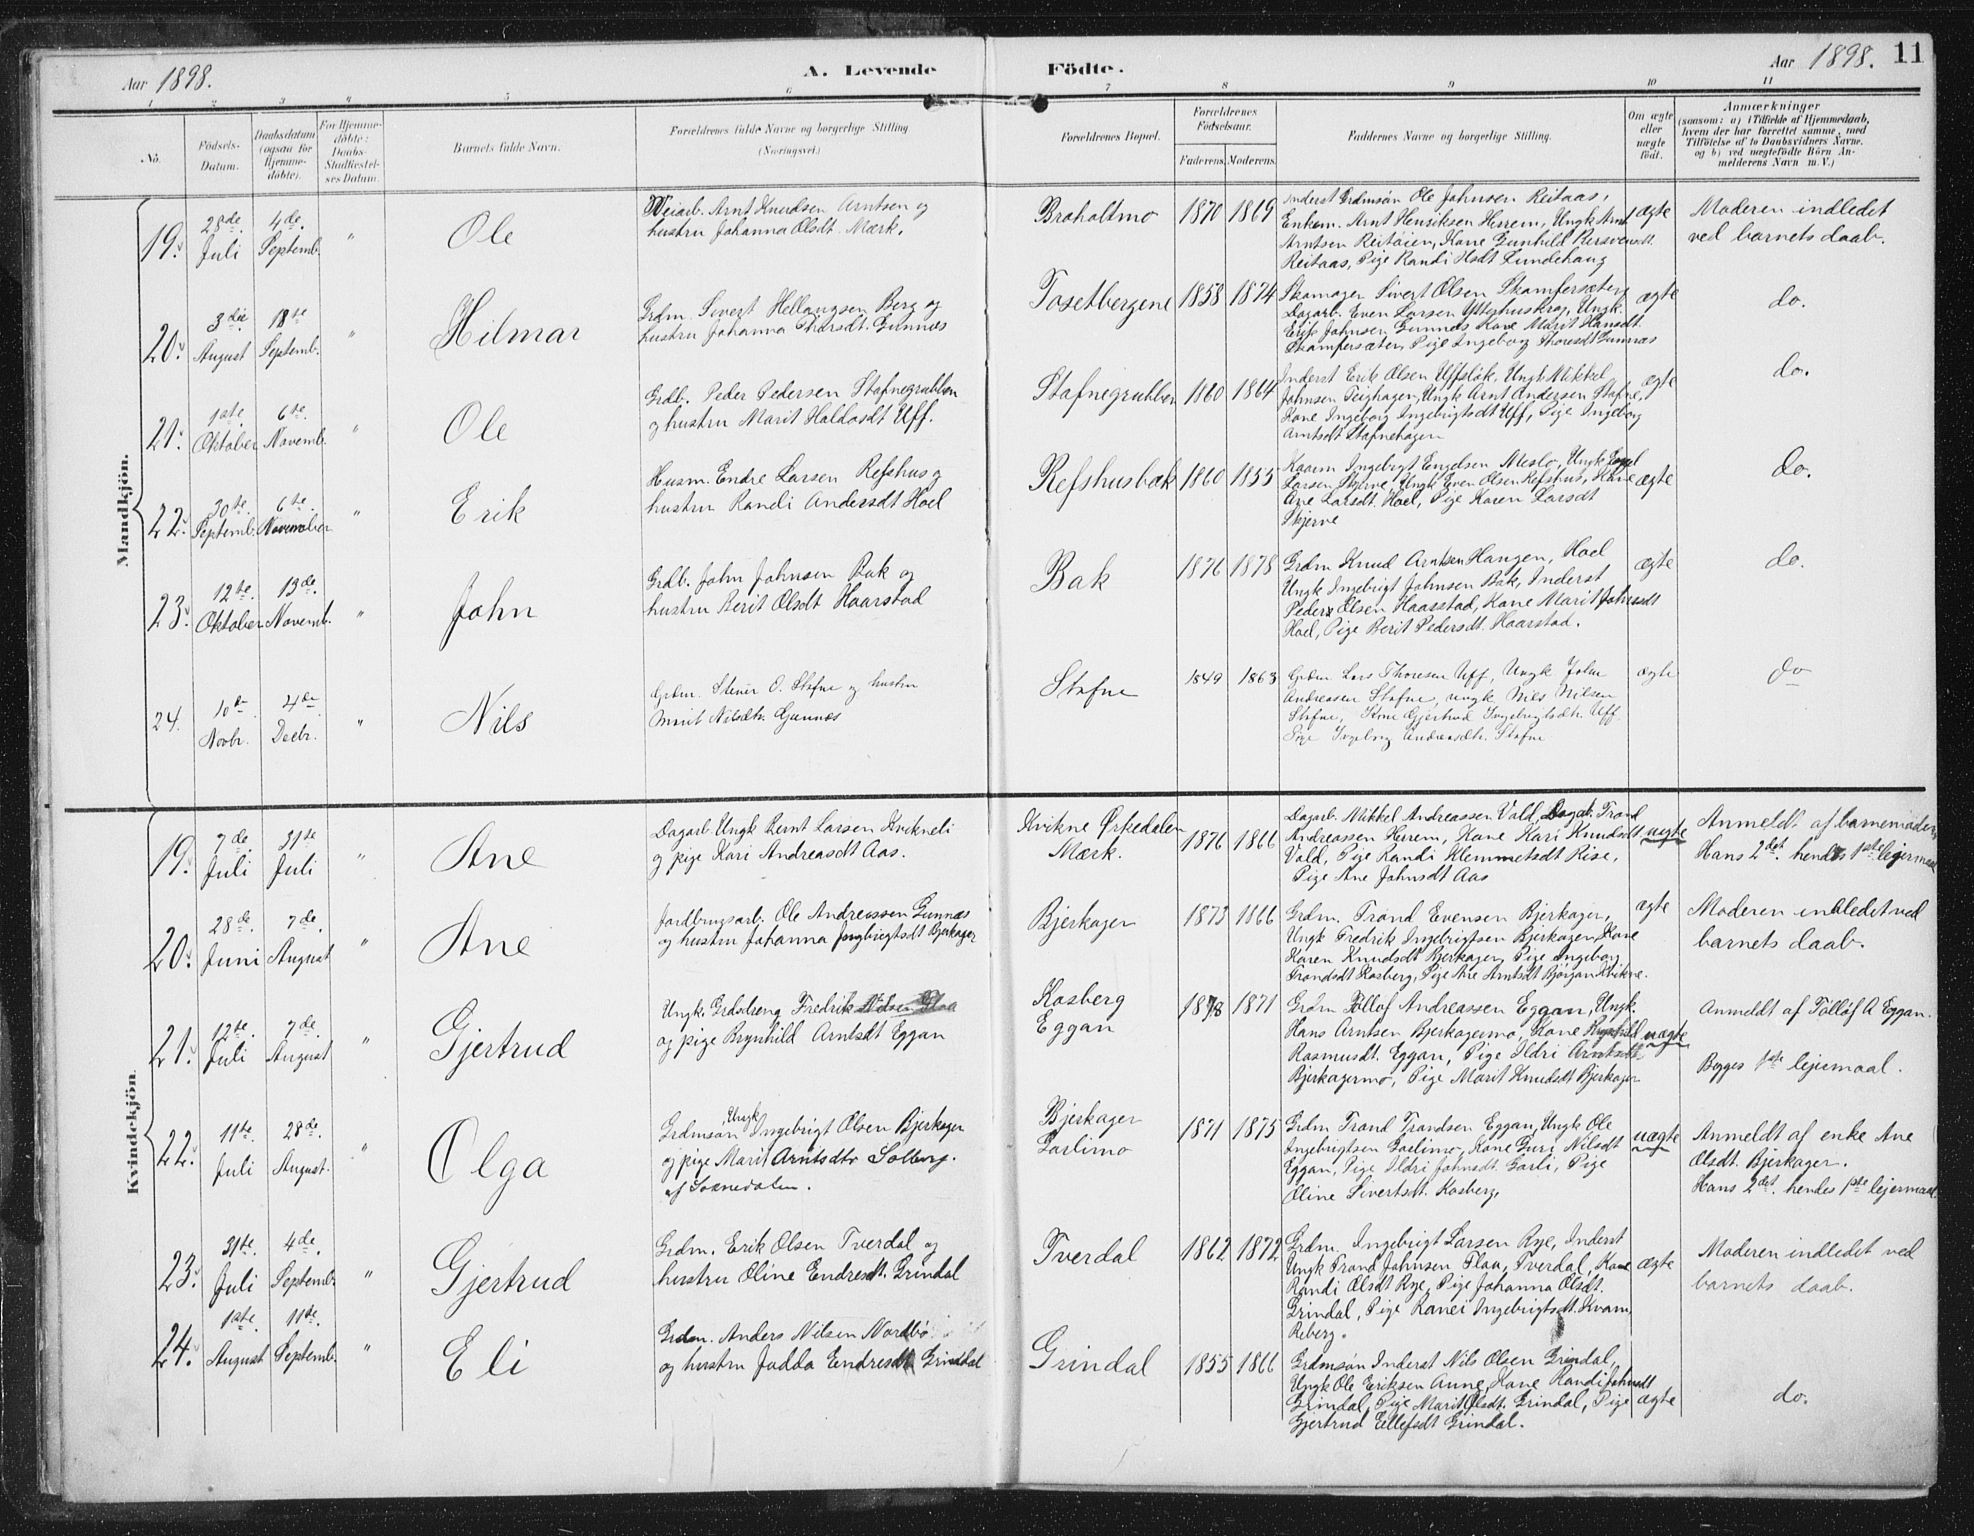 Aar 1898.
A. Levende
Födte.
Aar 1898. 11
1 2 3 4 5 6 7 8 9 10 11
No.
Födsels-
Datum.
Daabsdatum
(ogsaa for
Hjemme-
döbte).
For Hjemme-
döbte:
Daabs-
Stadfæstel-
ses Datum.
Barnets fulde Navn.
Forældrenes fulde Navne og borgerlige Stilling
(Næringsvei.)
Forældrenes Bopæl.
Forældrenes
Födselsaar.
Faderens. Moderens.
Faddernes Navne og borgerlige Stilling.
Om ægte
eller
uægte
födt.
Anmærkninger
(saasom: a) i Tilfælde af Hjemmedaab,
hvem der har forrettet samme, med
Tilföielse af to Daabsvidners Navne.
og b) ved uægtefödte Börn An-
melderens Navn m. V.)
Mandkjön.
19.
28de
Juli
4de.
Septemb.
"
Ole
Veiarb. Arnt Knudsen Arntsen og
hustru Johanna Olsdt. Mærk.
Braholtmo
1870 1869
Inderst Grdmsøn Ole Johnsen Reitaas,
Enkem. Arnt Henriksen Herrem, Ungk Arnt
Arntsen Reitøien, Kone Gunhild
Reitaas, Pige Randi Lundehaug
ægte
Moderen indledet
ved barnets daab.
20.
3die
August
18te
Septemb.
"
Hilmar
Grdm. Sivert Hellaugsen Berg og
hustru Johanna Thorsdt. Gunnes
Tosetbergene
1858 1874
Skomager Sivert Olsen Skamfersæter,
Dagarb. Even Larsen Ytterhuskrog, Ungk.
Erik Johnsen Gunnes Kone Marit Hansdt.
Skamfersæter, Pige Ingeborg Thoresdt Gunnæs
ægte
do.
21.
1ste
Oktober
6te
Novemb.
"
Ole
Grdb. Peder Pedersen Stafnegrubben
og hustru Marit Haldosdt Uff.
Stafnegrubben
1860 1864
Inderst Erik Olsen Uffsløk, Ungk Mikkel
Johnsen Teighagen, Ungk Arnt Andersen Stafne,
Kone Ingeborg Ingebrigtsdt Uff, Pige Ingeborg
Arntsdt Stafnehagen
ægte
do.
22.
30te
Septemb.
6te
November
"
Erik
Husm. Endre Larsen Refshus og
hustru Randi Andersdt Hoel
Refshusbak
1860 1855
Kaarm Ingebrigt Engelsen Meslo, Ungk
Larsen Skjerve, Ungk Even Olsen Refshus, Kone
Ane Larsdt. Hoel, Pige Karen Larsdt
Skjerve
ægte
do.
23.
12te
Oktober
13de
Novemb.
"
John
Grdb. John Johnsen Bak og
hustru Berit Olsdt Haarstad
Bak
1876 1878
Grdm Knud Arntsen Haugen, Hoel
Ungk Ingebrigt Johnsen Bak, Inderst
Peder Olsen Haarstad, Kone Marit Johnsdt
Hoel, Pige Berit Pedersdt. Haarstad.
ægte
do.
24.
10de
Novbr.
4de
Decbr.
"
Nils
Grdm. Stener O. Stafne og hustru
Marit Nilsdtr. Gunnes
Stafne
1849 1863
Grdm Lars Thoresen Uff, Ungk John
Andreassen Stafne, ungk Nils Nilsen
Stafne, Kone Gjertrud Ingebrigtsdtr. Uff.
Pige Ingeborg Andreasdtr. Stafne
ægte
do
Kvindekjön.
19.
7de
Juli
31te
Juli
"
Ane
Dagarb. Ungk Bernt Larsen Kvikneli
og pige Kari Andreasdt Aas.
Kvikne Ørkedalen
Mærk.
1876 1866
Dagarb. Mikkel Andreassen Vold, Dagarb. Trond
Andreassen Herrem, Kone Kari Knudsdt
Vold, Pige Randi Klemmetsdt Rise,
Pige Ane Johnsdt Aas
uægte
Anmeldt af barnemoderen,
Hans 2det. hendes 1ste leiermaal
20.
28de
Juni
7de
August
"
Ane
Jordbrugsarb. Ole Andreassen Gunnæs
og hustru Johanna Ingbrigtsdt Bjerkager
Bjerkager
1873 1866
Grdm. Trond Evensen Bjerkager,
Ungk Fredrik Ingebrigtsen Bjerkager, Kone
Karen Knudsdt Bjerkager, Pige Ingeborg
Trondsdt Kosberg, Pige Ane Arntsdt Bjørgan Kvikne.
ægte
Moderen indledet ved
barnets daab.
21.
12te
Juli
7de
August
"
Gjertrud
Ungk. Grdsdreng Fredrik Nilsen Floa
og pige Brynhild Arntsdt Eggan
Kosberg
Eggan
1878 1871
Grdm Tollof Andreassen Eggan, Ungk.
Hans Arntsen Bjerkagermo, Kone
Rasmusdt. Eggan, Pige Ildri Arntsdt
Bjerkagermo, Pige Marit Knudsdt Bjerkager
uægte
Anmeldt af Tølløf A Eggan.
Begges 1ste leiermaal.
22.
11te
Juli
28de
August.
"
Olga
Grdmsøn Ungk Ingebrigt Olsen Bjerkager
og pige Marit Arntsdtr Solberg.
af Soknedalen.
Bjerkager
Garlimo
1871 1875
Grdm Trond Trondsen Eggan, Ungk Ole
Ingebrigtsen Garlimo, Kone Guri Nilsdt
Eggan, Pige Ildri Johnsdt. Garli, Pige
Oline Sivertsdt. Kosberg,
uægte
Anmeldt af enke Ane
Olsdt. Bjerkager.
Hans 2det. hendes 1ste lejermaal.
23.
31te
Juli
4de
Septemb.
"
Gjertrud
Grdm. Erik Olsen Tverdal og
hustru Oline Endresdt. Grindal
Tverdal
1862 1872
Grdm. Ingebrigt Larsen Rye, Inderst
Ungk Trond Johnsen Floa, Tverdal, Kone
Randi Olsdt Rye, Pige Johanna Olsdt.
Grindal, Pige Ranei Ingebrigtsdt. Kvam
Reberg.
ægte
Moderen indledet ved
barnets daab.
24.
1ste
August
11te
Septemb.
"
Eli
Grdm. Anders Nilsen Nordbø
og hustru Jødda Endresdt Grindal
Grindal
1855 1866
Grdmsøn Inderst Nils Olsen Grindal,
Ungk Ole Eriksen Aune, Kone Randi Johnsdt
Grindal, Pige Marit Olsdt. Grindal, Pige
Gjertrud Ellefsdt Grindal.
ægte
do.